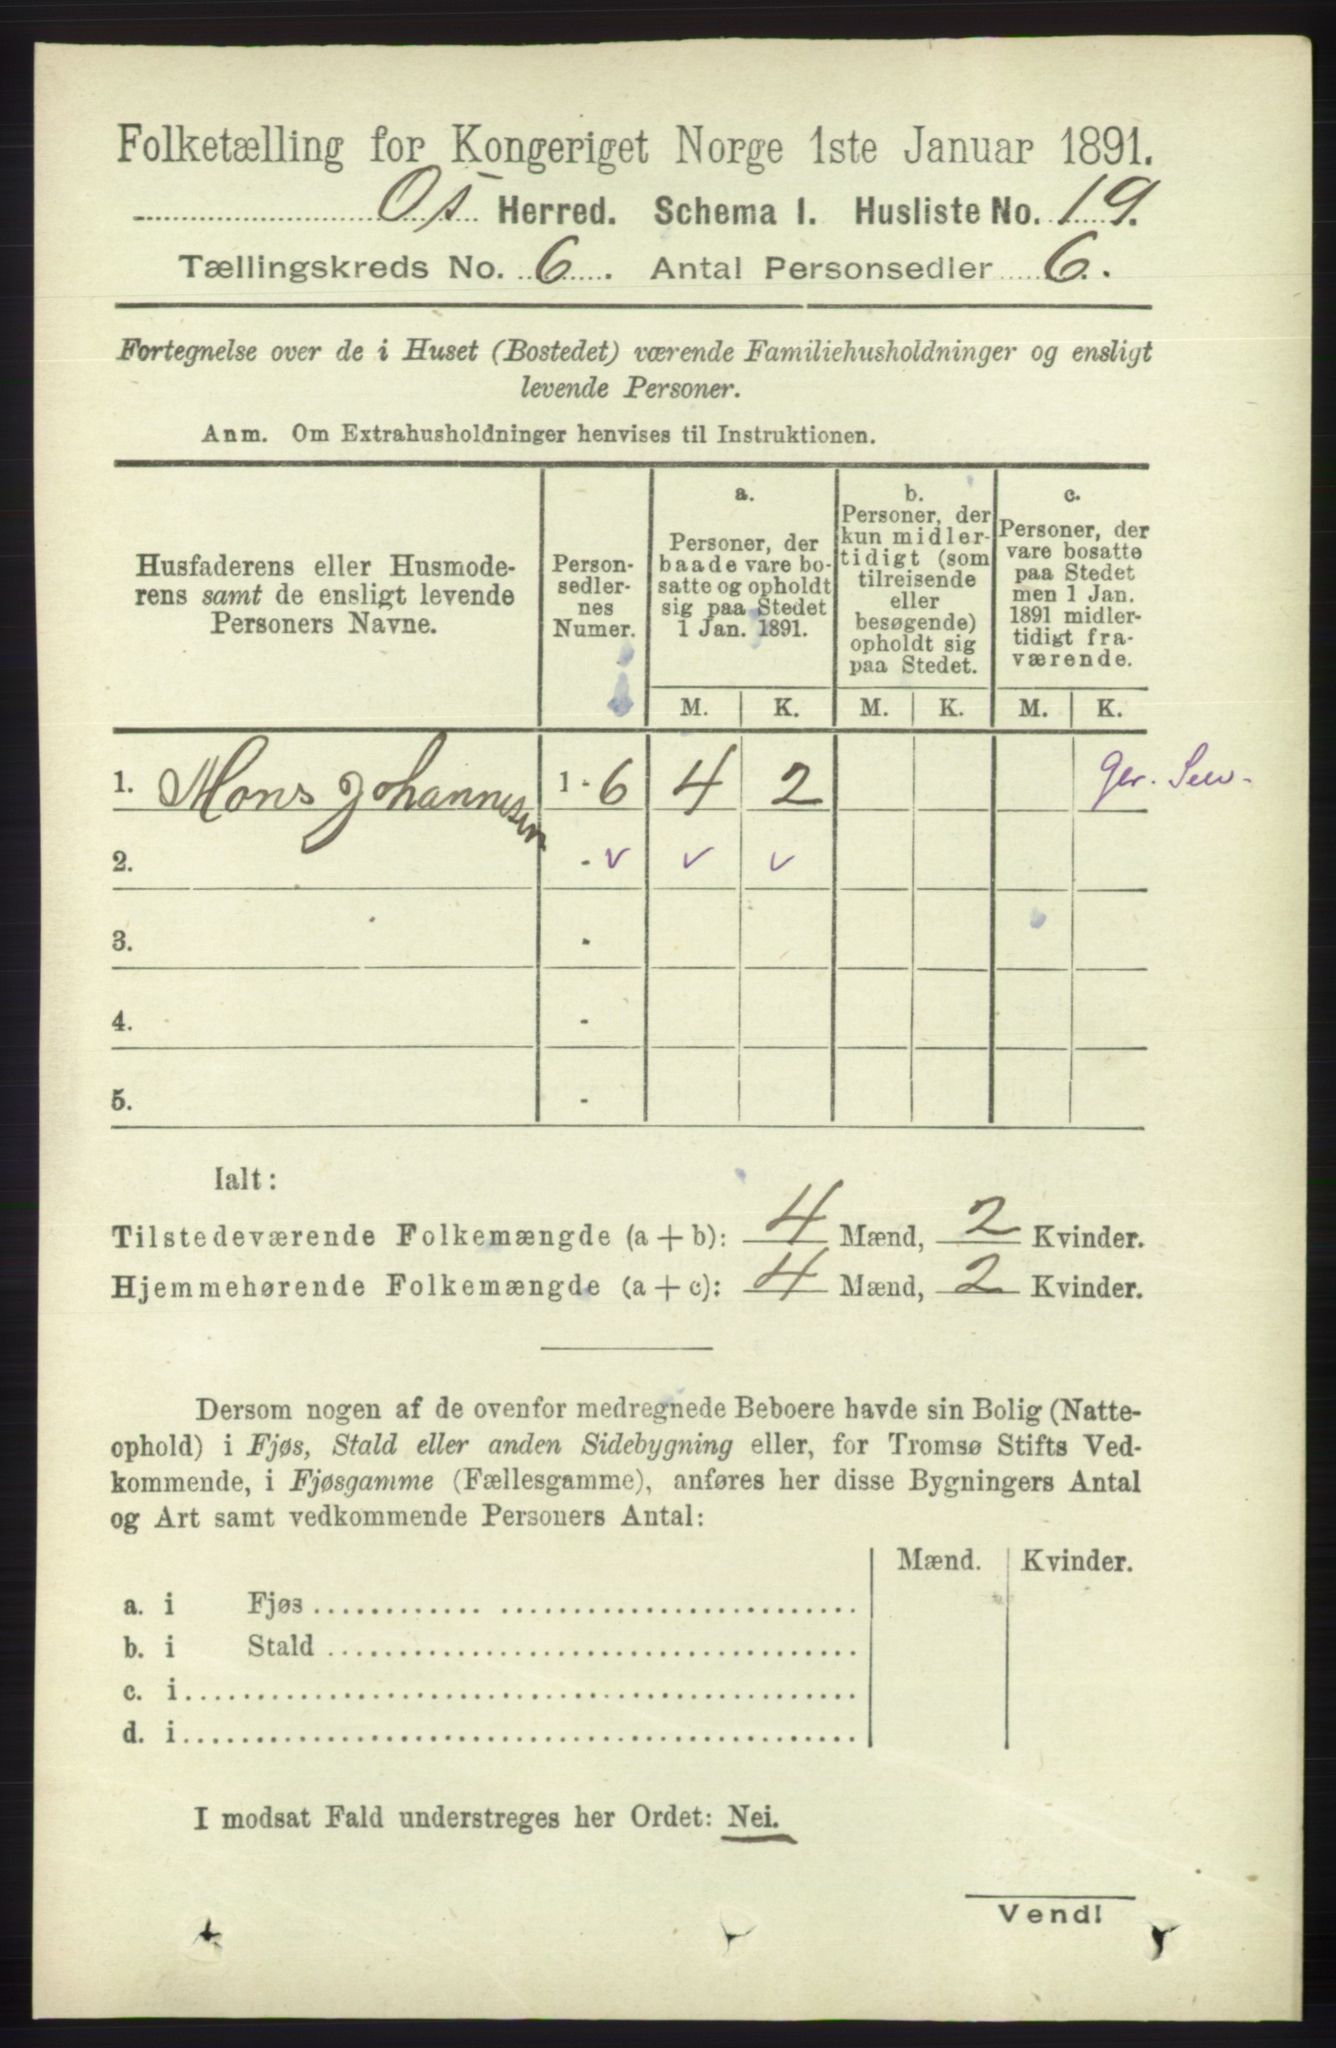 Folketælling for Kongeriget Norge 1ste Januar 1891.
Os Herred. Schema I. Husliste No. 19.
Tællingskreds No. 6. Antal Personsedler 6.
Fortegnelse over de i Huset (Bostedet) værende Familiehusholdninger og ensligt
levende Personer.
Anm. Om Extrahusholdninger henvises til Instruktionen.
Husfaderens eller Husmode-
rens samt de ensligt levende
Personers Navne.
Person-
sedler-
nes
Numer.
a.
Personer, der
baade vare bo-
satte og opholdt
sig paa Stedet
1 Jan. 1891.
b.
Personer, der
kun midler-
tidigt (som
tilreisende
eller
besøgende)
opholdt sig
paa Stedet.
c.
Personer, der
vare bosatte
paa Stedet
men 1 Jan.
1891 midler-
tidigt fra-
værende.
M. K. M. K. M. K.
1. Mons Johannesen 1 - 6 4 2 Ger.
2. - v v v
3. -
4. -
5. -
Ialt:
Tilstedeværende Folkemængde (a + b): 4 Mænd, 2 Kvinder.
Hjemmehørende Folkemængde (a + c): 4 Mænd, 2 Kvinder.
Dersom nogen af de ovenfor medregnede Beboere havde sin Bolig (Natte-
ophold) i Fjøs, Stald eller anden Sidebygning eller, for Tromsø Stifts Ved-
kommende, i Fjøsgamme (Fællesgamme), anføres her disse Bygningers Antal
og Art samt vedkommende Personers Antal:
Mænd. Kvinder.
a. i Fjøs
b. i Stald
c. i
d. i
I modsat Fald understreges her Ordet: Nei.
Vend!